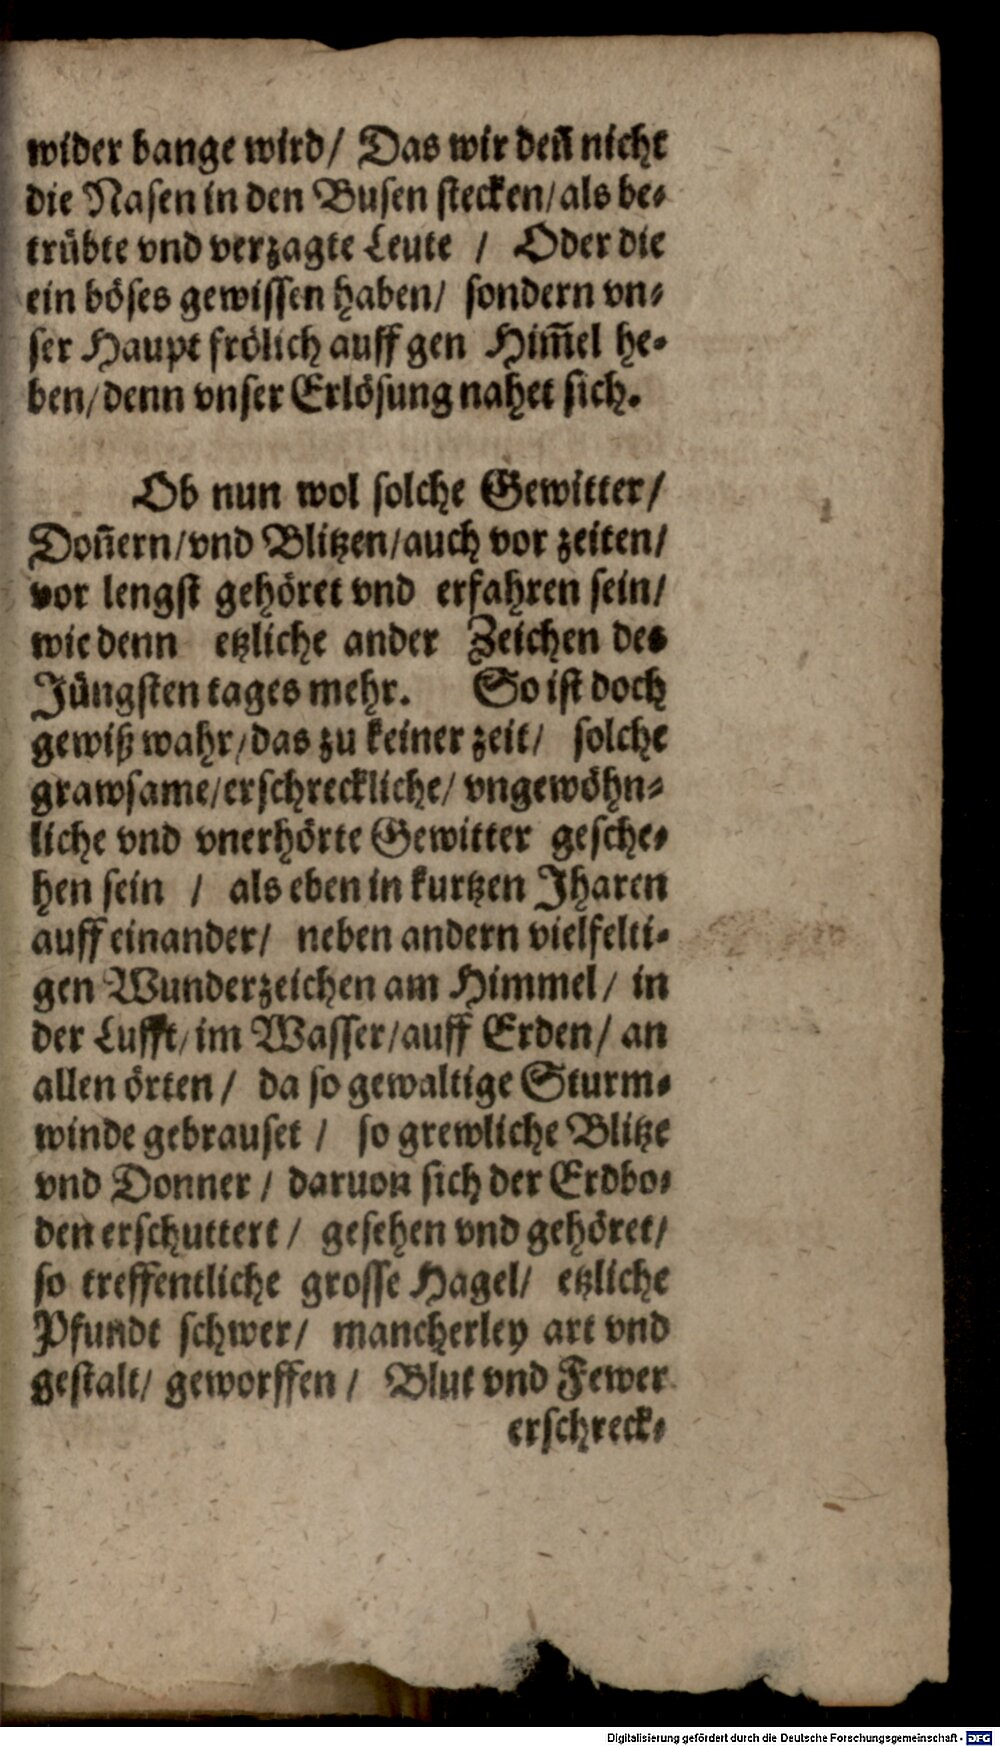 wider bange wird/ Das wir deñ nicht
die Nasen in den Busen stecken/als be-
trübte vnd verzagte Leute / Oder die
ein böses gewissen haben/ sondern vn-
ser Haupt frölich auff gen Him̃el he-
ben/denn vnser Erlösung nahet sich.
Ob nun wol solche Gewitter/
Doñern/vnd Blitzen/auch vor zeiten/
vor lengst gehöret vnd erfahren sein/
wie denn etzliche ander Zeichen des
Jüngsten tages mehr. So ist doch
gewiß wahr/das zu keiner zeit/ solche
grawsame/erschreckliche/ vngewöhn-
liche vnd vnerhörte Gewitter gesche-
hen sein / als eben in kurtzen Jharen
auff einander/ neben andern vielfelti-
gen Wunderzeichen am Himmel/ in
der Lufft/im Wasser/auff Erden/ an
allen örten/ da so gewaltige Sturm-
winde gebrauset / so grewliche Blitze
vnd Donner/ daruon sich der Erdbo-
den erschuttert/ gesehen vnd gehöret/
so treffentliche grosse Hagel/ etzliche
Pfundt schwer/ mancherley art vnd
gestalt/ geworffen/ Blut vnd Fewer
erschreck-
Digitalisierung gefördert durch die Deutsche Forschungsgemeinschaft - DFG